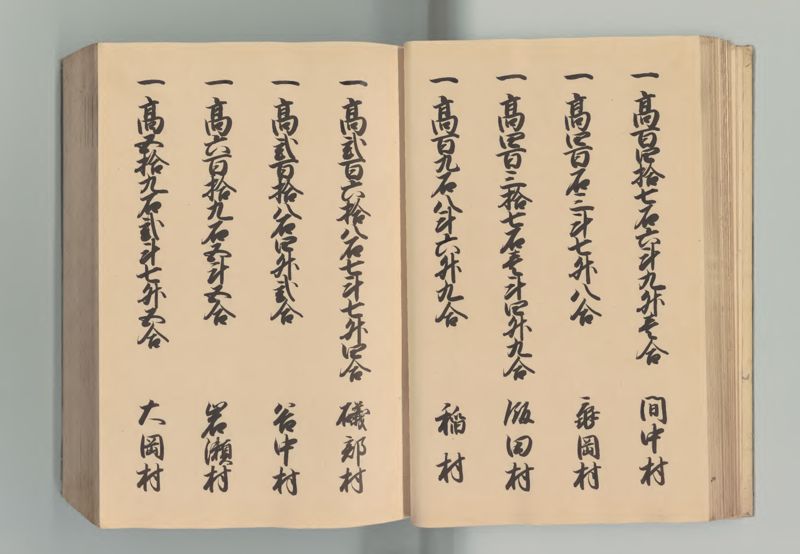 一 髙百四拾七石六斗九升壱合 間中村
一 髙四百石三斗七升八合 岡村
一 髙四百三拾七石壱斗四升九合 飯田村
一 髙百九石八斗六升九合 稲村
一 髙弐百六拾八石七斗七升四合 磯部村
一 髙弐百拾八石四升弐合 谷中村
一 髙六百拾九石五斗五合 岩瀬村
一 髙五拾九石弐斗七升五合 大岡村